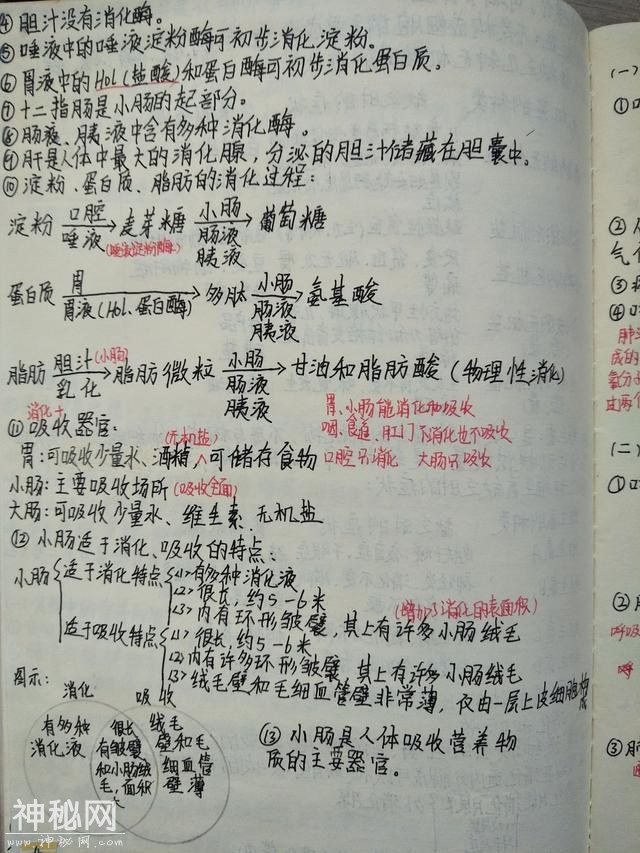 ④ 胆汁没有消化酶。
⑤ 唾液中的唾液淀粉酶可初步消化淀粉。
⑥ 胃液中的Hol(盐酸)和蛋白酶可初步消化蛋白质。
⑦ 十二指肠是小肠的起部分。
⑧ 肠液、胰液中含有多种消化酶。
⑨ 肝是人体中最大的消化腺，分泌的胆汁储藏在胆囊中。
⑩ 淀粉、蛋白质、脂肪的消化过程：
淀粉 口腔 唾液 → 麦芽糖 小肠 肠液 胰液 → 葡萄糖
(唾液淀粉酶)
蛋白质 胃 胃液(Hol、蛋白酶) → 多肽 小肠 肠液 胰液 → 氨基酸
脂肪 胆汁 乳化 (小肠) → 脂肪微粒 小肠 肠液 胰液 → 甘油和脂肪酸 (物理性消化)
消化+
⑪ 吸收器官：
胃、小肠能消化和吸收
咽、食道、肛门不消化也不吸收
口腔只消化 大肠只吸收
(无机盐)
胃：可吸收少量水、酒精，可储存食物
小肠：主要吸收场所 (吸收全面)
大肠：可吸收少量水、维生素、无机盐
⑫ 小肠适于消化、吸收的特点：
小肠
适于消化特点
<1> 有多种消化液
<2> 很长，约5-6米
<3> 内有环形皱襞，其上有许多小肠绒毛
(增加了消化的表面积)
适于吸收特点
<1> 很长，约5-6米
<2> 内有许多环形皱襞，其上有许多小肠绒毛
<3> 绒毛壁和毛细血管壁非常薄，仅由一层上皮细胞构成
图示：
消化 吸收
有多种
消化液
很长
有皱襞
和小肠绒
毛，面积
大
绒毛
壁和毛
细血管
壁薄
⑬ 小肠是人体吸收营养物
质的主要器官。
神秘网
www.神秘网.com
(一)
①
②
气体
③
④
肺
成的
氧分子
过两个
(二)
①
②
呼吸
呼
③